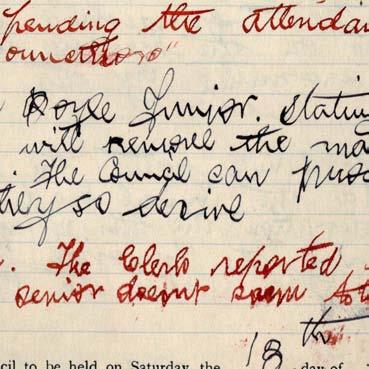 pending the attendan
Doyle Junior. stating
will remove the ma
. The Council can
they so desire
. The Clerk reported
senior doesnt seem to
18th
cil to be held on Saturday the day of